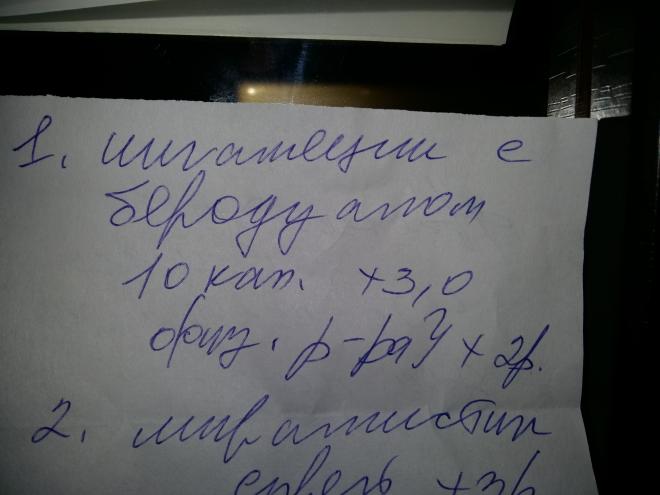 1. ингаляции с
беродуалом
10 кап. +3,0
физ. р-ра x 2р.
2. мирамистин
x 3р